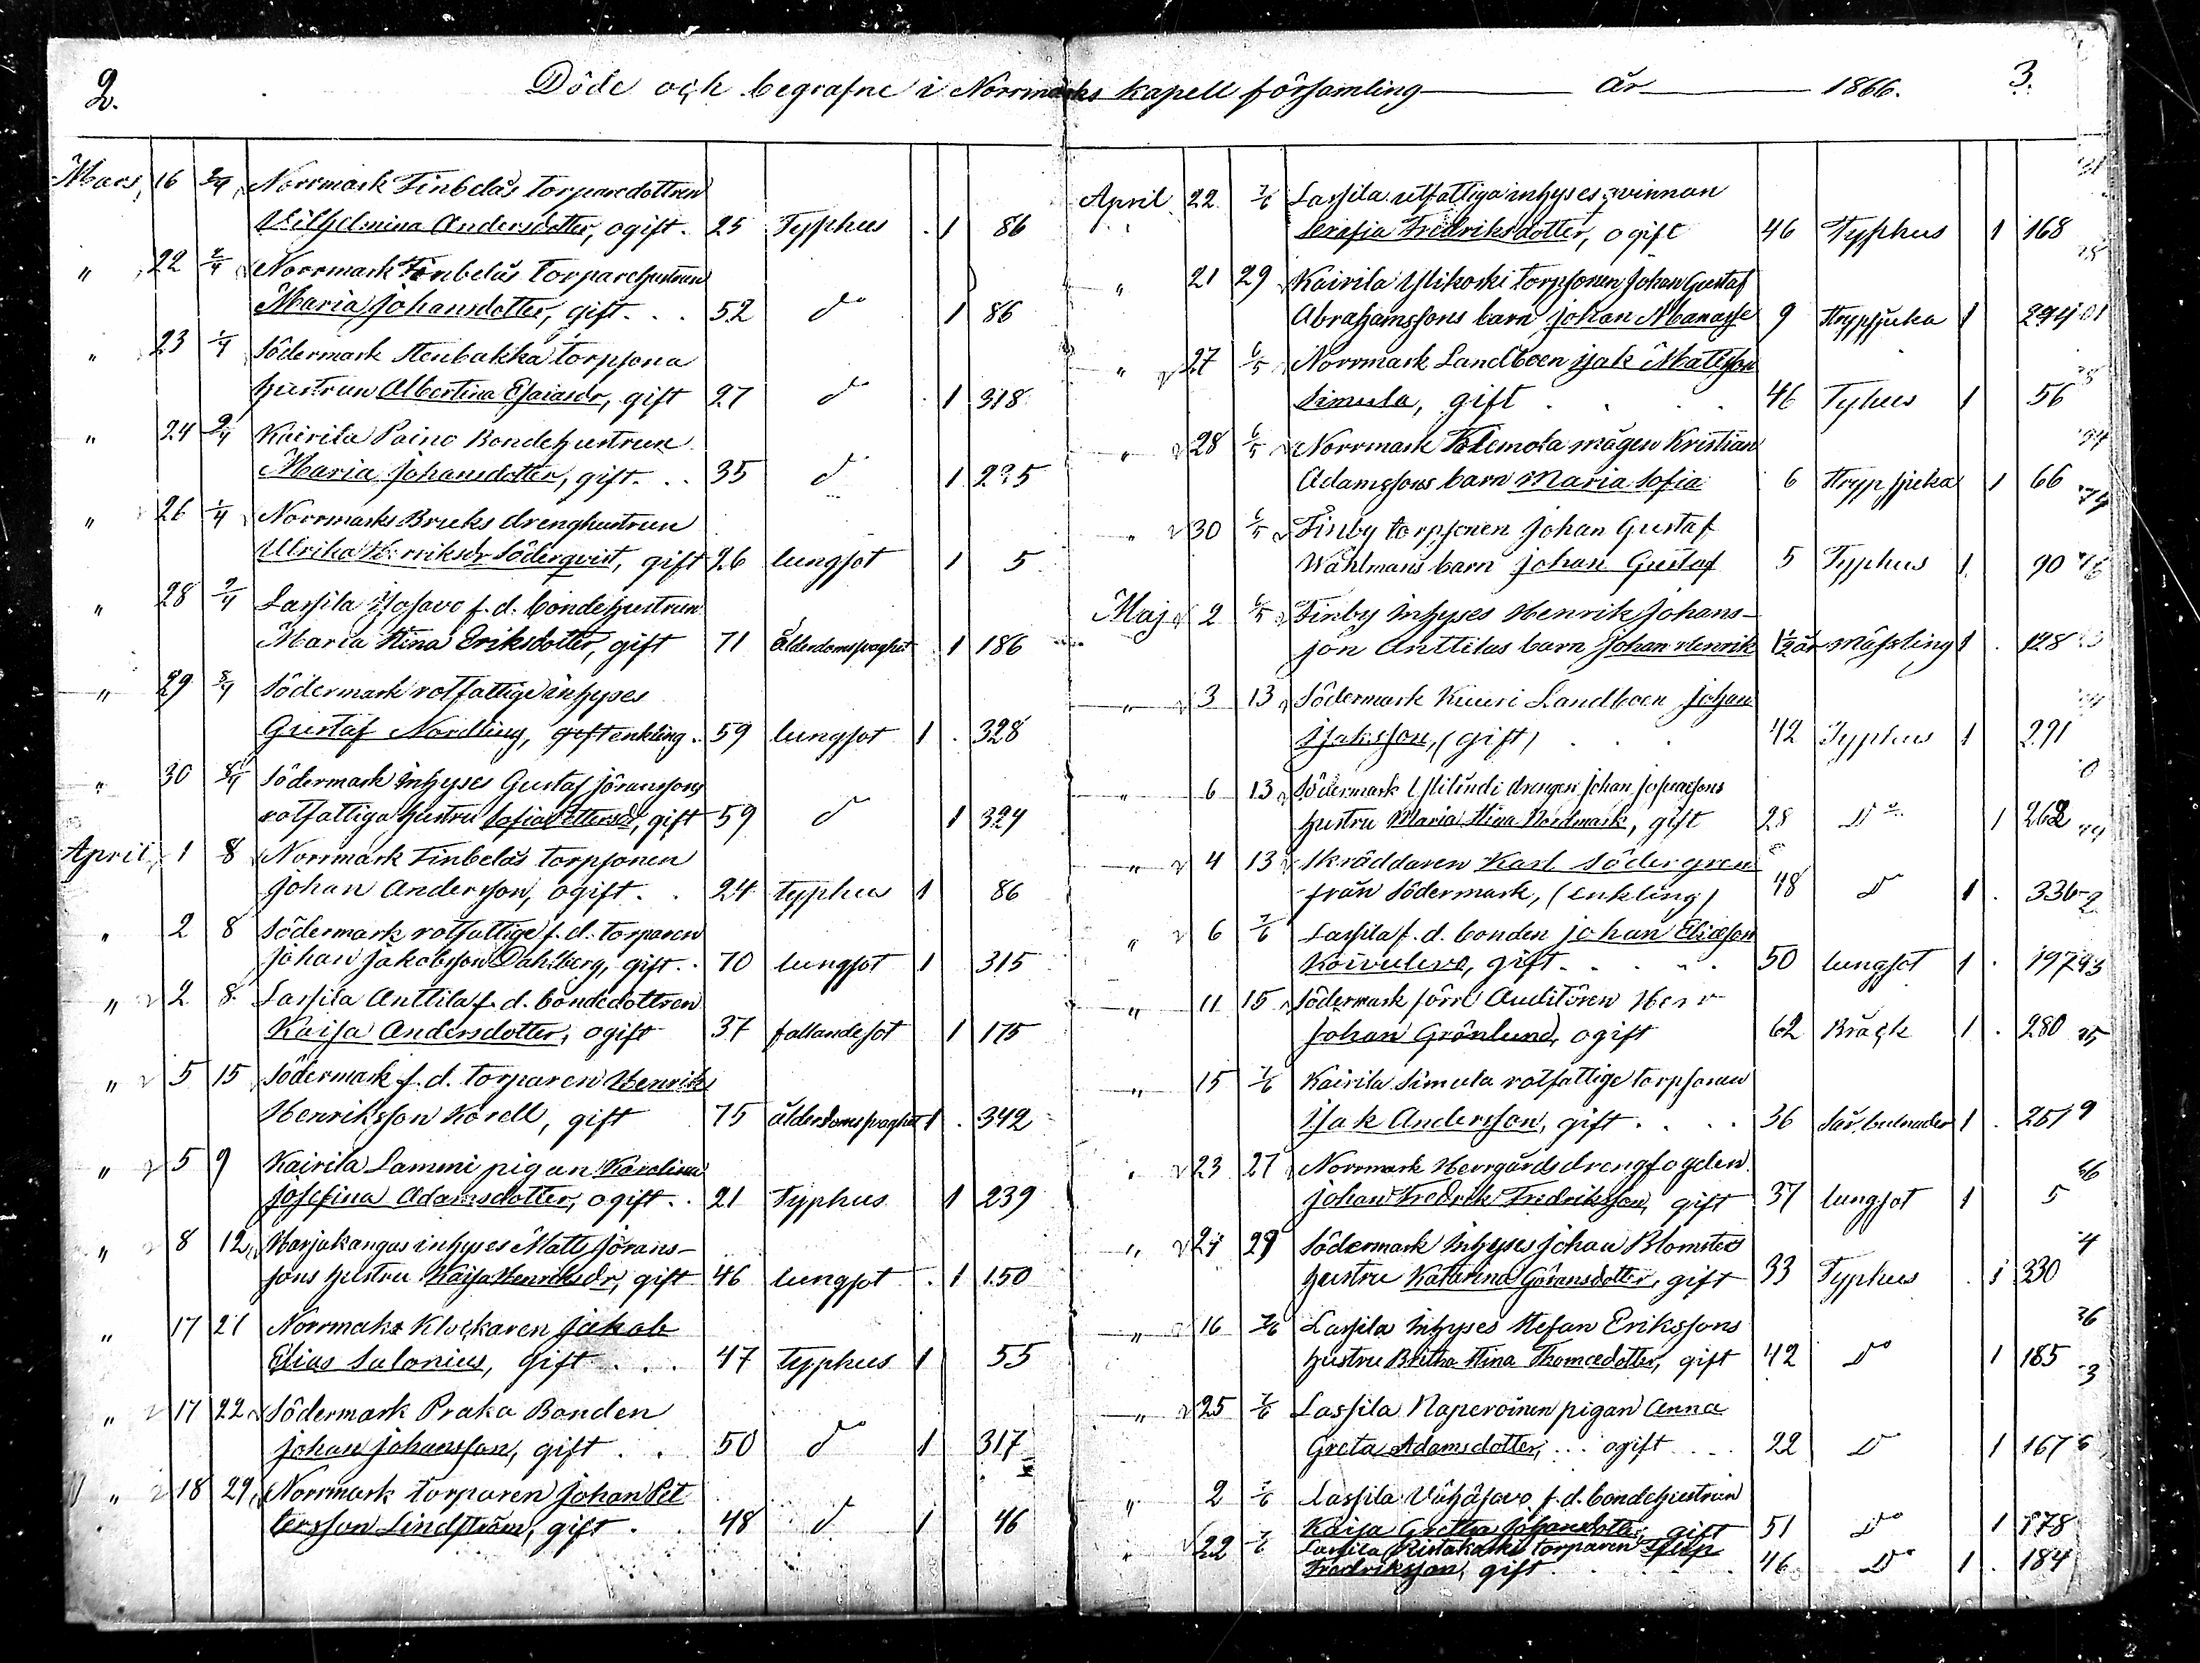 2. Döde och begrafne i Norrmarks kapell församling år 1866. 3.
Mars 16 2/4 Norrmark Finbelås torparedottren
Vilhelmina Andersdotter, ogift. 25 Typhus 1 86
" 22 2/4 Norrmark Finbelås torparehustrun
Maria Johansdotter, gift. 52 do 1 86
" 23 1/4 Södermark Stenbakka torpsona
hustrun Albertina Esaiasdr, gift 27 do 1 318
" 24 2/4 Kairila Paino Bondehustrun
Maria Johansdotter, gift. 35 do 1 235
" 26 1/4 Norrmarks Bruks drenghustrun
Ulrika Henriksdr Söderqvist, gift 26 lungsot 1 5
" 28 2/4 Lassila Isosavo f.d. bondehustrun
Maria Stina Eriksdotter, gift 71 ålderdomssvaghet 1 186
" 29 8/4 Södermark rotfattige inhyses
Gustaf Nordling, gift enkling. 59 lungsot 1 328
" 30 8/4 Södermark inhyses Gustaf Göranssons
rotfattiga hustru Sofia Pettersdr, gift 59 do 1 324
April 1 8 Norrmark Finbelås torpsonen
Johan Andersson, ogift. 24 typhus 1 86
" 2 8 Södermark rotfattige f.d. torparen
Johan Jakobsson Dahlberg, gift. 70 lungsot 1 315
" 2 8 Lassila Anttila f.d. bondedottren
Kaisa Andersdotter, ogift 37 fallandesot 1 175
" 5 15 Södermark f.d. torparen Henrik
Henriksson Korell, gift 75 ålderdomssvaghet 1 342
" 5 9 Kairila Lammi pigan Karolina
Josefina Adamsdotter, ogift. 21 Typhus 1 239
" 8 12 Harjakangas inhyses Matts Görans-
sons hustru Kaisa Henriksdr, gift 46 lungsot 1 150
" 17 21 Norrmaks Klockaren Jakob
Elias Salonius, gift 47 Typhus 1 55
" 17 22 Södermark Praka Bonden
Johan Johansson, gift 50 do 1 317
" 18 29 Norrmark torparen Johan Pet
tersson Lindström, gift 48 do 1 46
April 22 7/6 Lassila utfattiga inhyses qvinnan
Serafia Fredriksdotter, ogift 46 Typhus 1 168
" 21 29 Kairila Ylikoski torpsonen Johan Gustaf
Abrahamssons barn Johan Manasse 9 Strypsjuka 1 294
" 27 6/5 Norrmark Landboen Isak Mattsson
Simula, gift 46 Tyhus 1 56
" 28 6/5 Norrmark Klemola mågen Kristian
Adamssons barn Maria Sofia 6 Strypsjuka 1 66
" 30 6/5 Finby torpsonen Johan Gustaf
Wåhlmans barn Johan Gustaf 5 Typhus 1 90
Maj 2 6/5 Finby inhyses Henrik Johans-
son Anttilas barn Johan Henrik 1½ år mässling 1 128
" 3 13 Södermark Kuuri Landboen Johan
Isaksson, (gift) 42 Typhus 1 291
" 6 13 Södermark Ylilundi drengen Johan Josuassons
hustru Maria Stina Nordmark, gift 28 Do 1 262
" 4 13 Skräddaren Karl Södergren
från Södermark, (enkling) 48 Do 1 336
" 6 7/6 Lassila f.d. bonden Johan Eliasson
Koivulevo, gift 50 lungsot 1 197
" 11 15 Södermark förre Auditören Herr
Johan Grönlund, ogift 62 Bråck 1 280
" 15 7/6 Kairila Simula rotfattige torpsonen
Isak Andersson, gift 36 Sår, bulnader 1 251
" 23 27 Norrmark Herrgårds drengfogden
Johan Fredrik Fredriksson, gift 37 lungsot 1 5
" 24 29 Södermark inhyses Johan Blomsters
hustru Katarina Göransdotter, gift 33 Typhus 1 330
" 16 7/6 Lassila inhyses Stefan Erikssons
hustru Britha Stina Thomasdotter, gift 42 Do 1 185
" 25 7/6 Lassila Naperoinen pigan Anna
Greta Adamsdotter, ogift 22 Do 1 167
" 2 7/6 Lassila Vähäsavo f.d. bondehustrun
Kaisa Gretha Johansdotter, gift 51 Do 1 178
" 22 7/6 Lassila torparen
Fredriksson, gift 46 Do 1 184